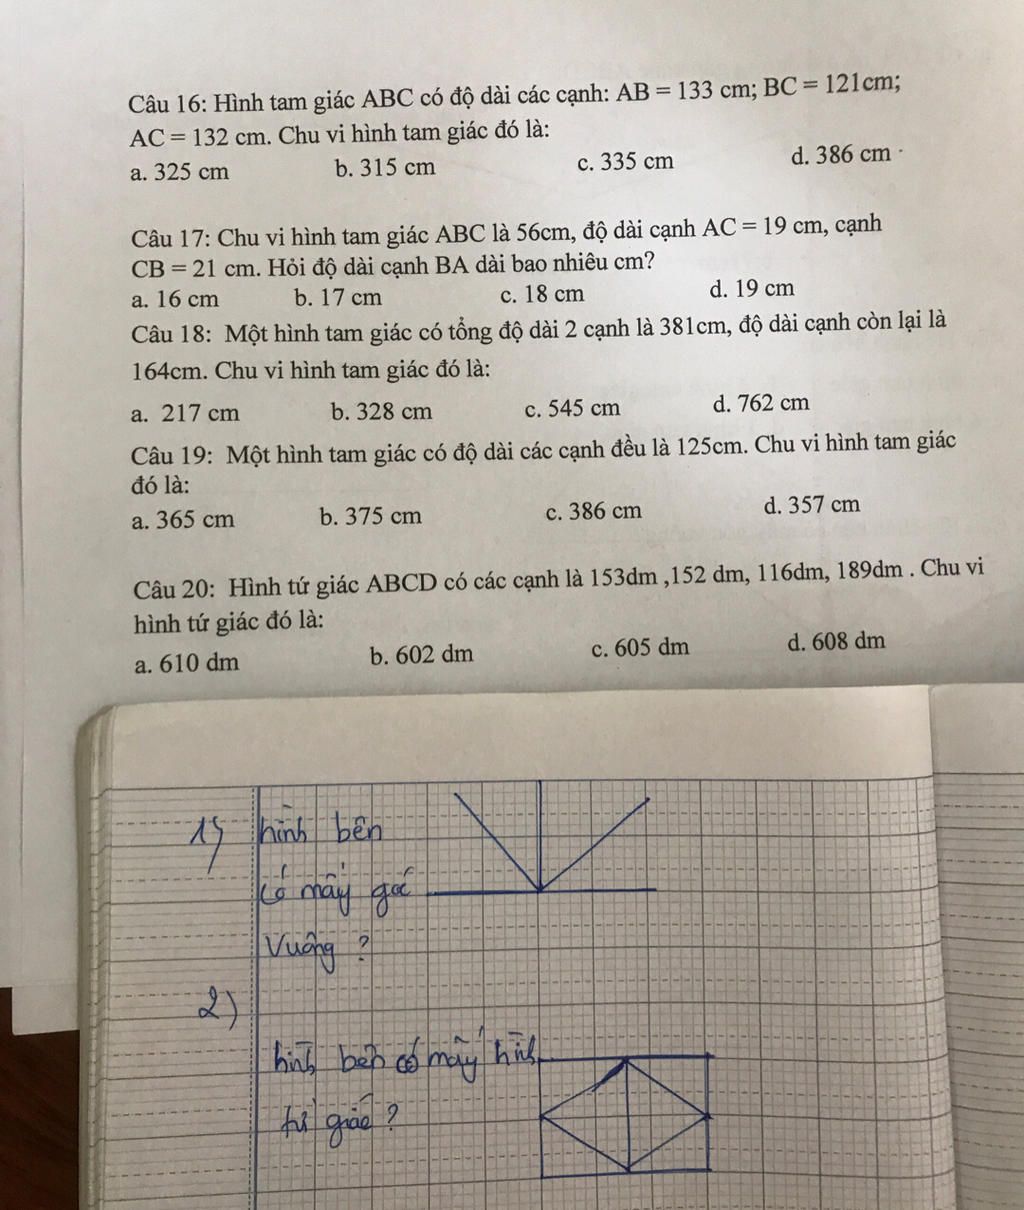 Câu 16: Hình tam giác ABC có độ dài các cạnh: AB = 133 cm; BC = 121cm;
AC = 132 cm. Chu vi hình tam giác đó là:
a. 325 cm b. 315 cm c. 335 cm d. 386 cm
Câu 17: Chu vi hình tam giác ABC là 56cm, độ dài cạnh AC = 19 cm, cạnh
CB = 21 cm. Hỏi độ dài cạnh BA dài bao nhiêu cm?
a. 16 cm b. 17 cm c. 18 cm d. 19 cm
Câu 18: Một hình tam giác có tổng độ dài 2 cạnh là 381cm, độ dài cạnh còn lại là
164cm. Chu vi hình tam giác đó là:
a. 217 cm b. 328 cm c. 545 cm d. 762 cm
Câu 19: Một hình tam giác có độ dài các cạnh đều là 125cm. Chu vi hình tam giác
đó là:
a. 365 cm b. 375 cm c. 386 cm d. 357 cm
Câu 20: Hình tứ giác ABCD có các cạnh là 153dm ,152 dm, 116dm, 189dm . Chu vi
hình tứ giác đó là:
a. 610 dm b. 602 dm c. 605 dm d. 608 dm
1) hình bên
có mấy góc
Vuông ?
2)
hình bên có mấy hình
tứ giác ?